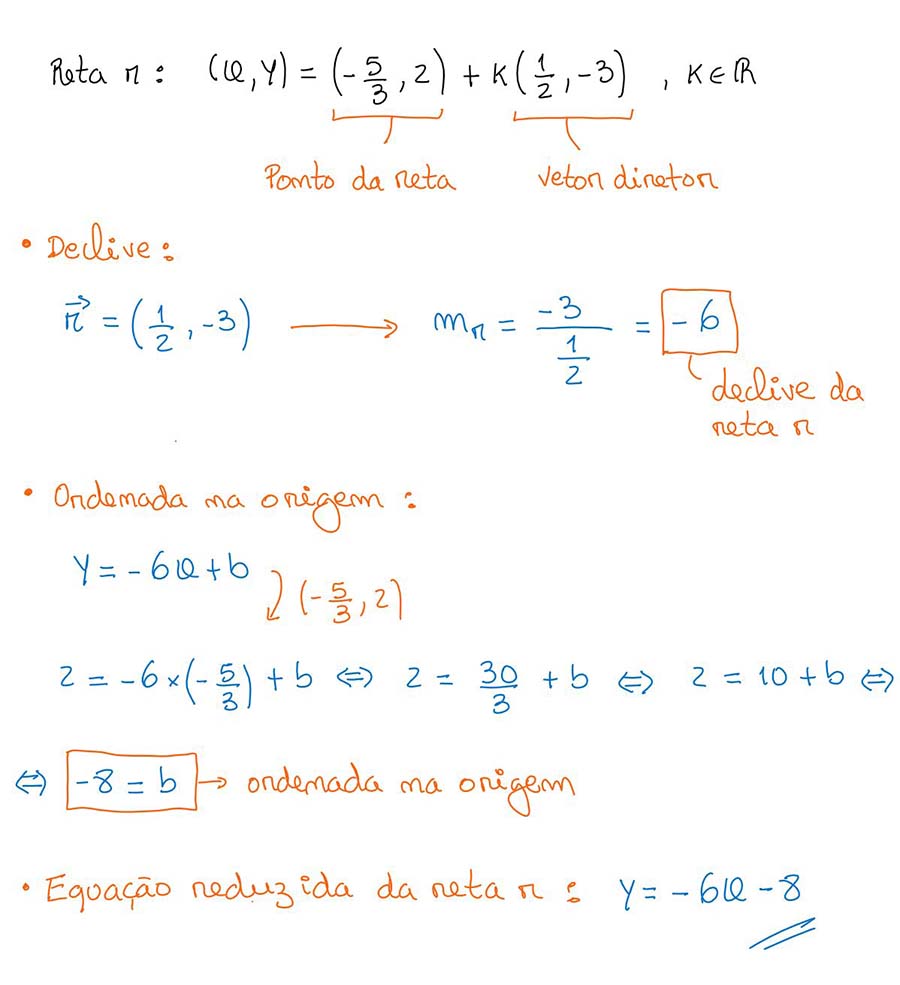 Reta r : (x, y) = (-5/3, 2) + k(1/2, -3) , k ∈ ℝ
Ponto da reta vetor diretor
• Declive :
r⃗ = (1/2, -3) ⟶ mᵣ = -3/(1/2) = -6
declive da
reta r
• Ordenada na origem :
y = -6x + b
(-5/3, 2)
2 = -6 × (-5/3) + b ⇔ 2 = 30/3 + b ⇔ 2 = 10 + b ⇔
⇔ -8 = b → ordenada na origem
• Equação reduzida da reta r : y = -6x - 8